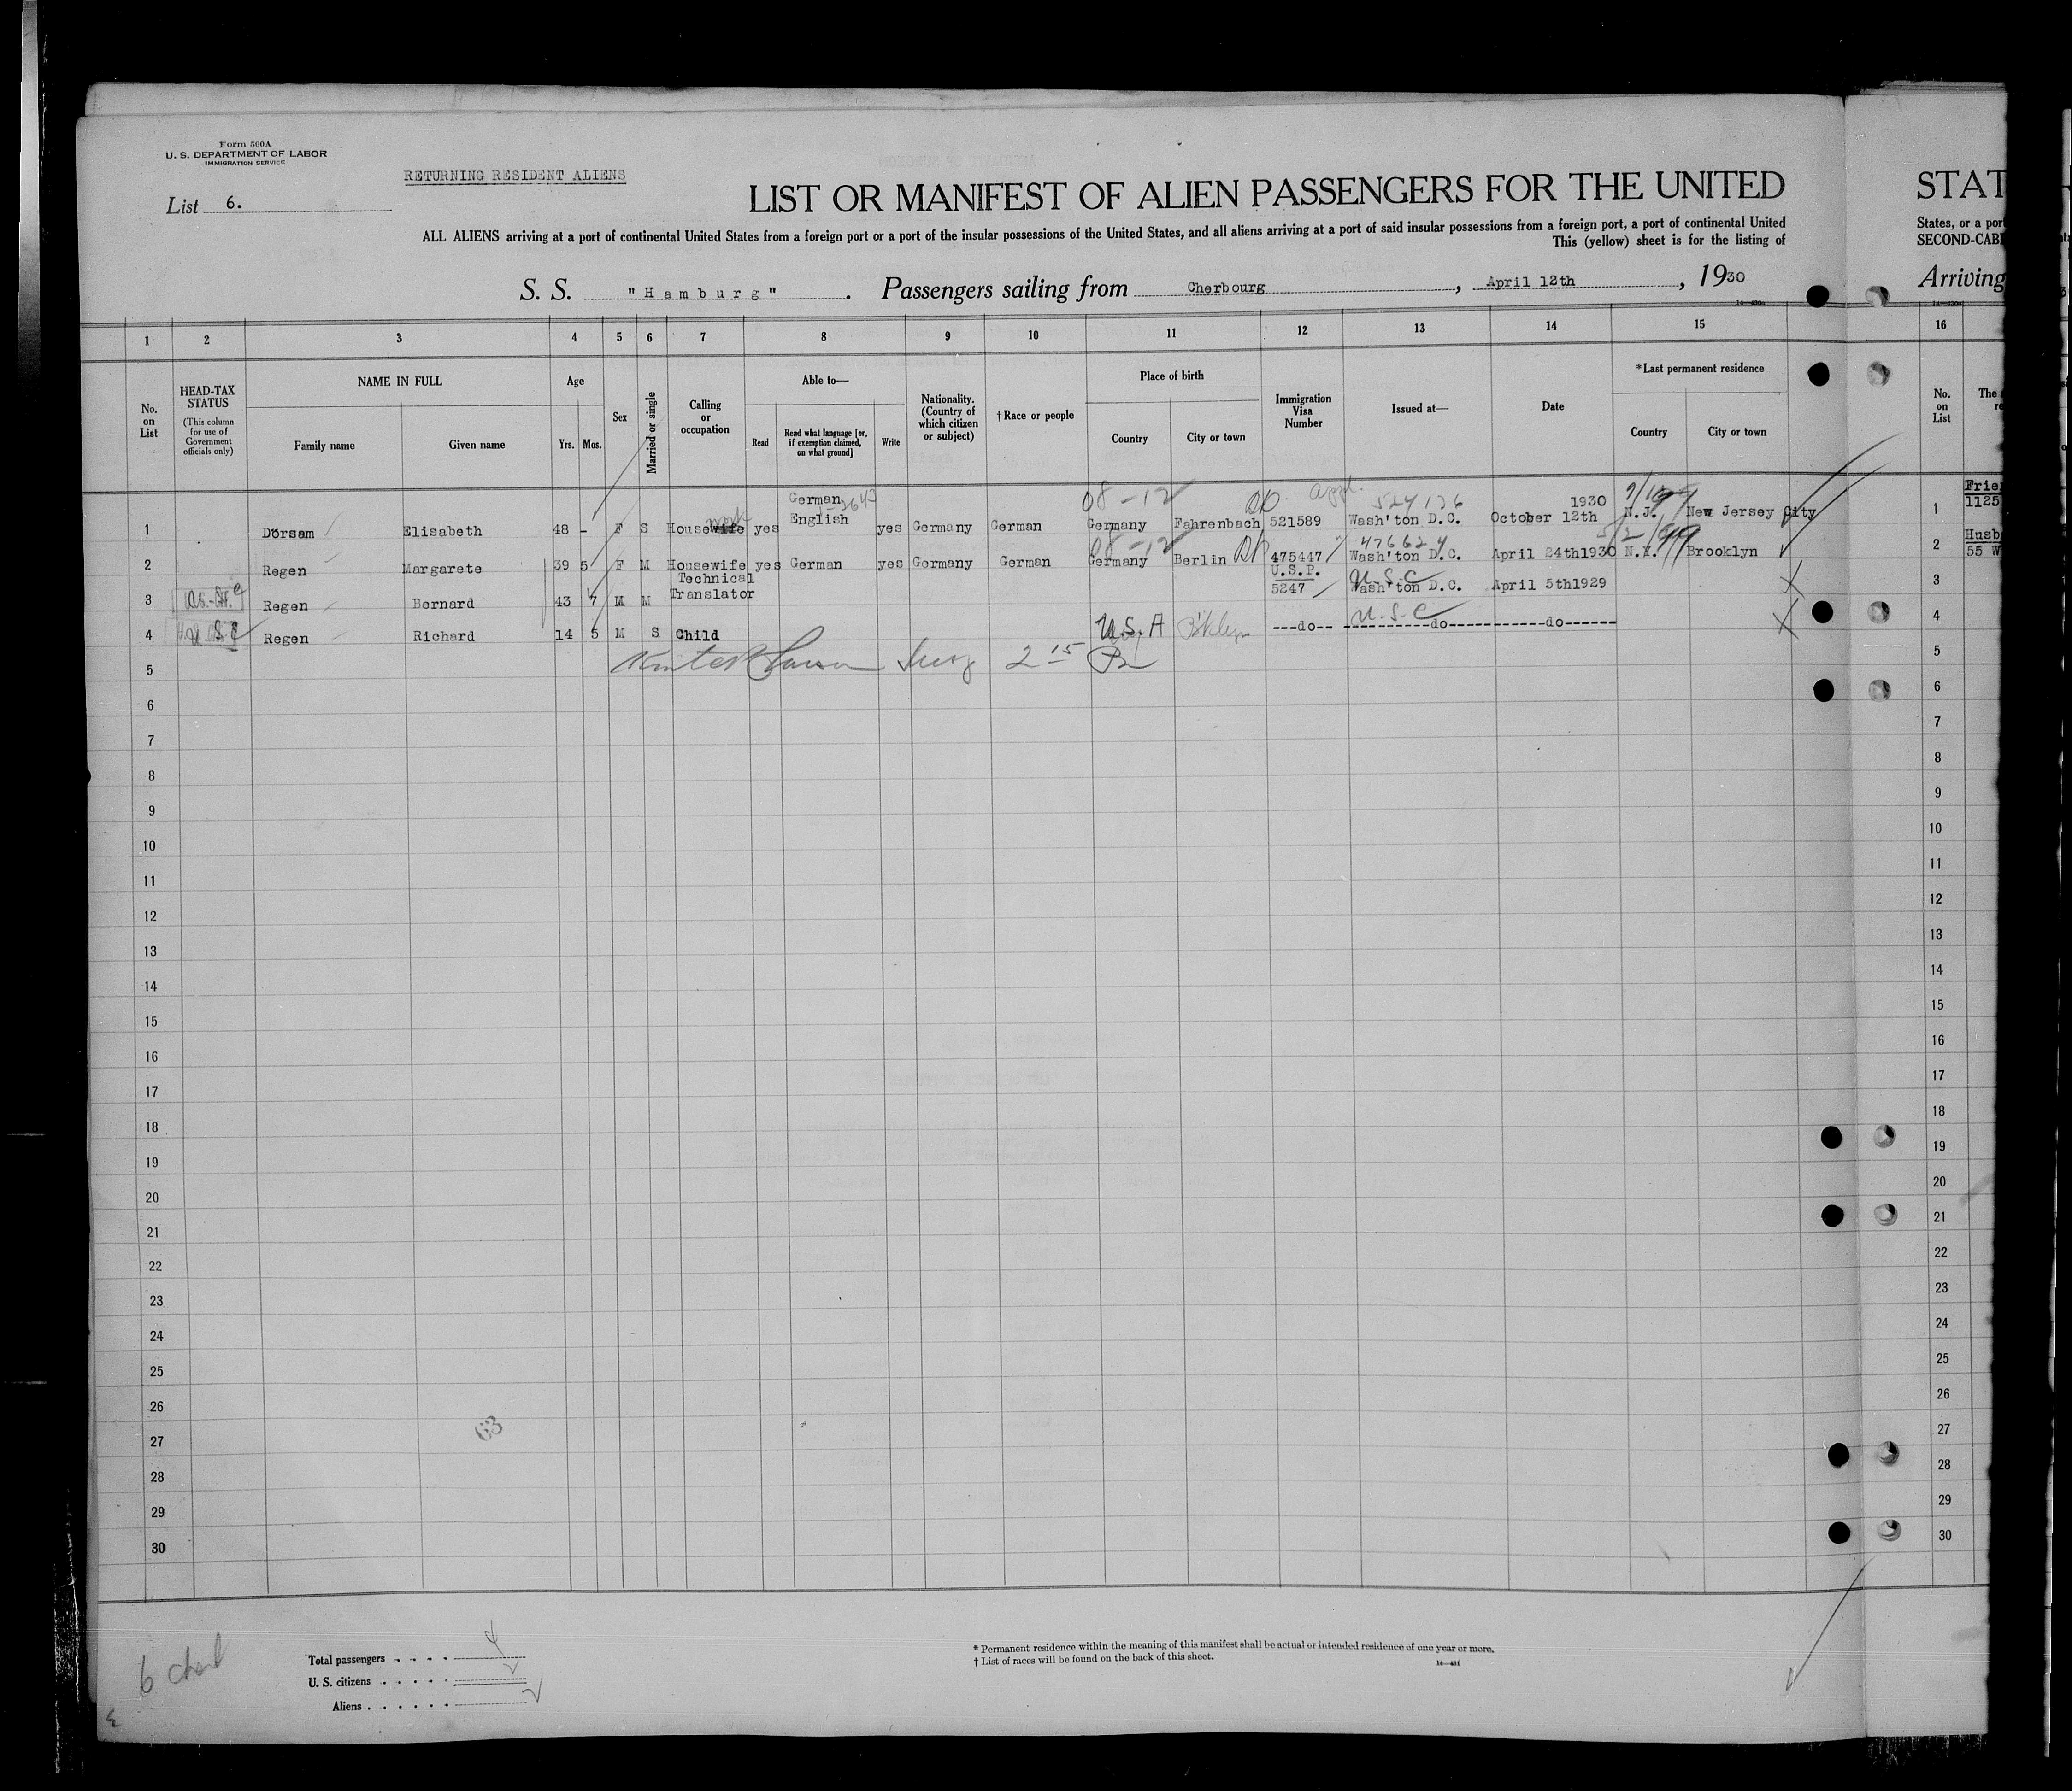 Form 500A
U. S. DEPARTMENT OF LABOR
IMMIGRATION SERVICE
RETURNING RESIDENT ALIENS
List 6.
LIST OR MANIFEST OF ALIEN PASSENGERS FOR THE UNITED
ALL ALIENS arriving at a port of continental United States from a foreign port or a port of the insular possessions of the United States, and all aliens arriving at a port of said insular possessions from a foreign port, a port of continental United
This (yellow) sheet is for the listing of
S. S. "Hamburg". Passengers sailing from Cherbourg, April 12th, 1930
STAT
States, or a por
SECOND-CAB
Arriving
1 2 3 4 5 6 7 8 9 10 11 12 13 14 15 16
No. on List
HEAD-TAX STATUS
(This column for use of Government officials only)
NAME IN FULL
Family name Given name
Age
Yrs. Mos.
Sex
Married or single
Calling or occupation
Able to—
Read
Read what language [or, if exemption claimed, on what ground]
Write
Nationality. (Country of which citizen or subject)
†Race or people
Place of birth
Country City or town
Immigration Visa Number
Issued at—
Date
*Last permanent residence
Country City or town
No. on List
The
re
08-12 DP. appl. 524136
German 1930
1 Dörsam Elisabeth 48 - F S Housewife yes English yes Germany German Germany Fahrenbach 521589 Wash'ton D.C. October 12th N.J. New Jersey City 1
Frie
1125
08-12 476624
2 Regen Margarete 39 5 F M Housewife yes German yes Germany German Germany Berlin 475447 Wash'ton D.C. April 24th1930 N.Y. Brooklyn 2
Husb
55 W
U.S.P. U.S.C
3 Regen Bernard 43 7 M M Technical Translator 5247 Wash'ton D.C. April 5th1929 3
U.S.C
4 U S C Regen Richard 14 5 M S Child U.S.A ---do-- ----------do------------do------ 4
5 2 15 5
6 6
7 7
8 8
9 9
10 10
11 11
12 12
13 13
14 14
15 15
16 16
17 17
18 18
19 19
20 20
21 21
22 22
23 23
24 24
25 25
26 26
27 27
28 28
29 29
30 30
63
6
Total passengers . . . . 4
U. S. citizens . . . . . 2
Aliens . . . . . . 2
* Permanent residence within the meaning of this manifest shall be actual or intended residence of one year or more.
† List of races will be found on the back of this sheet.